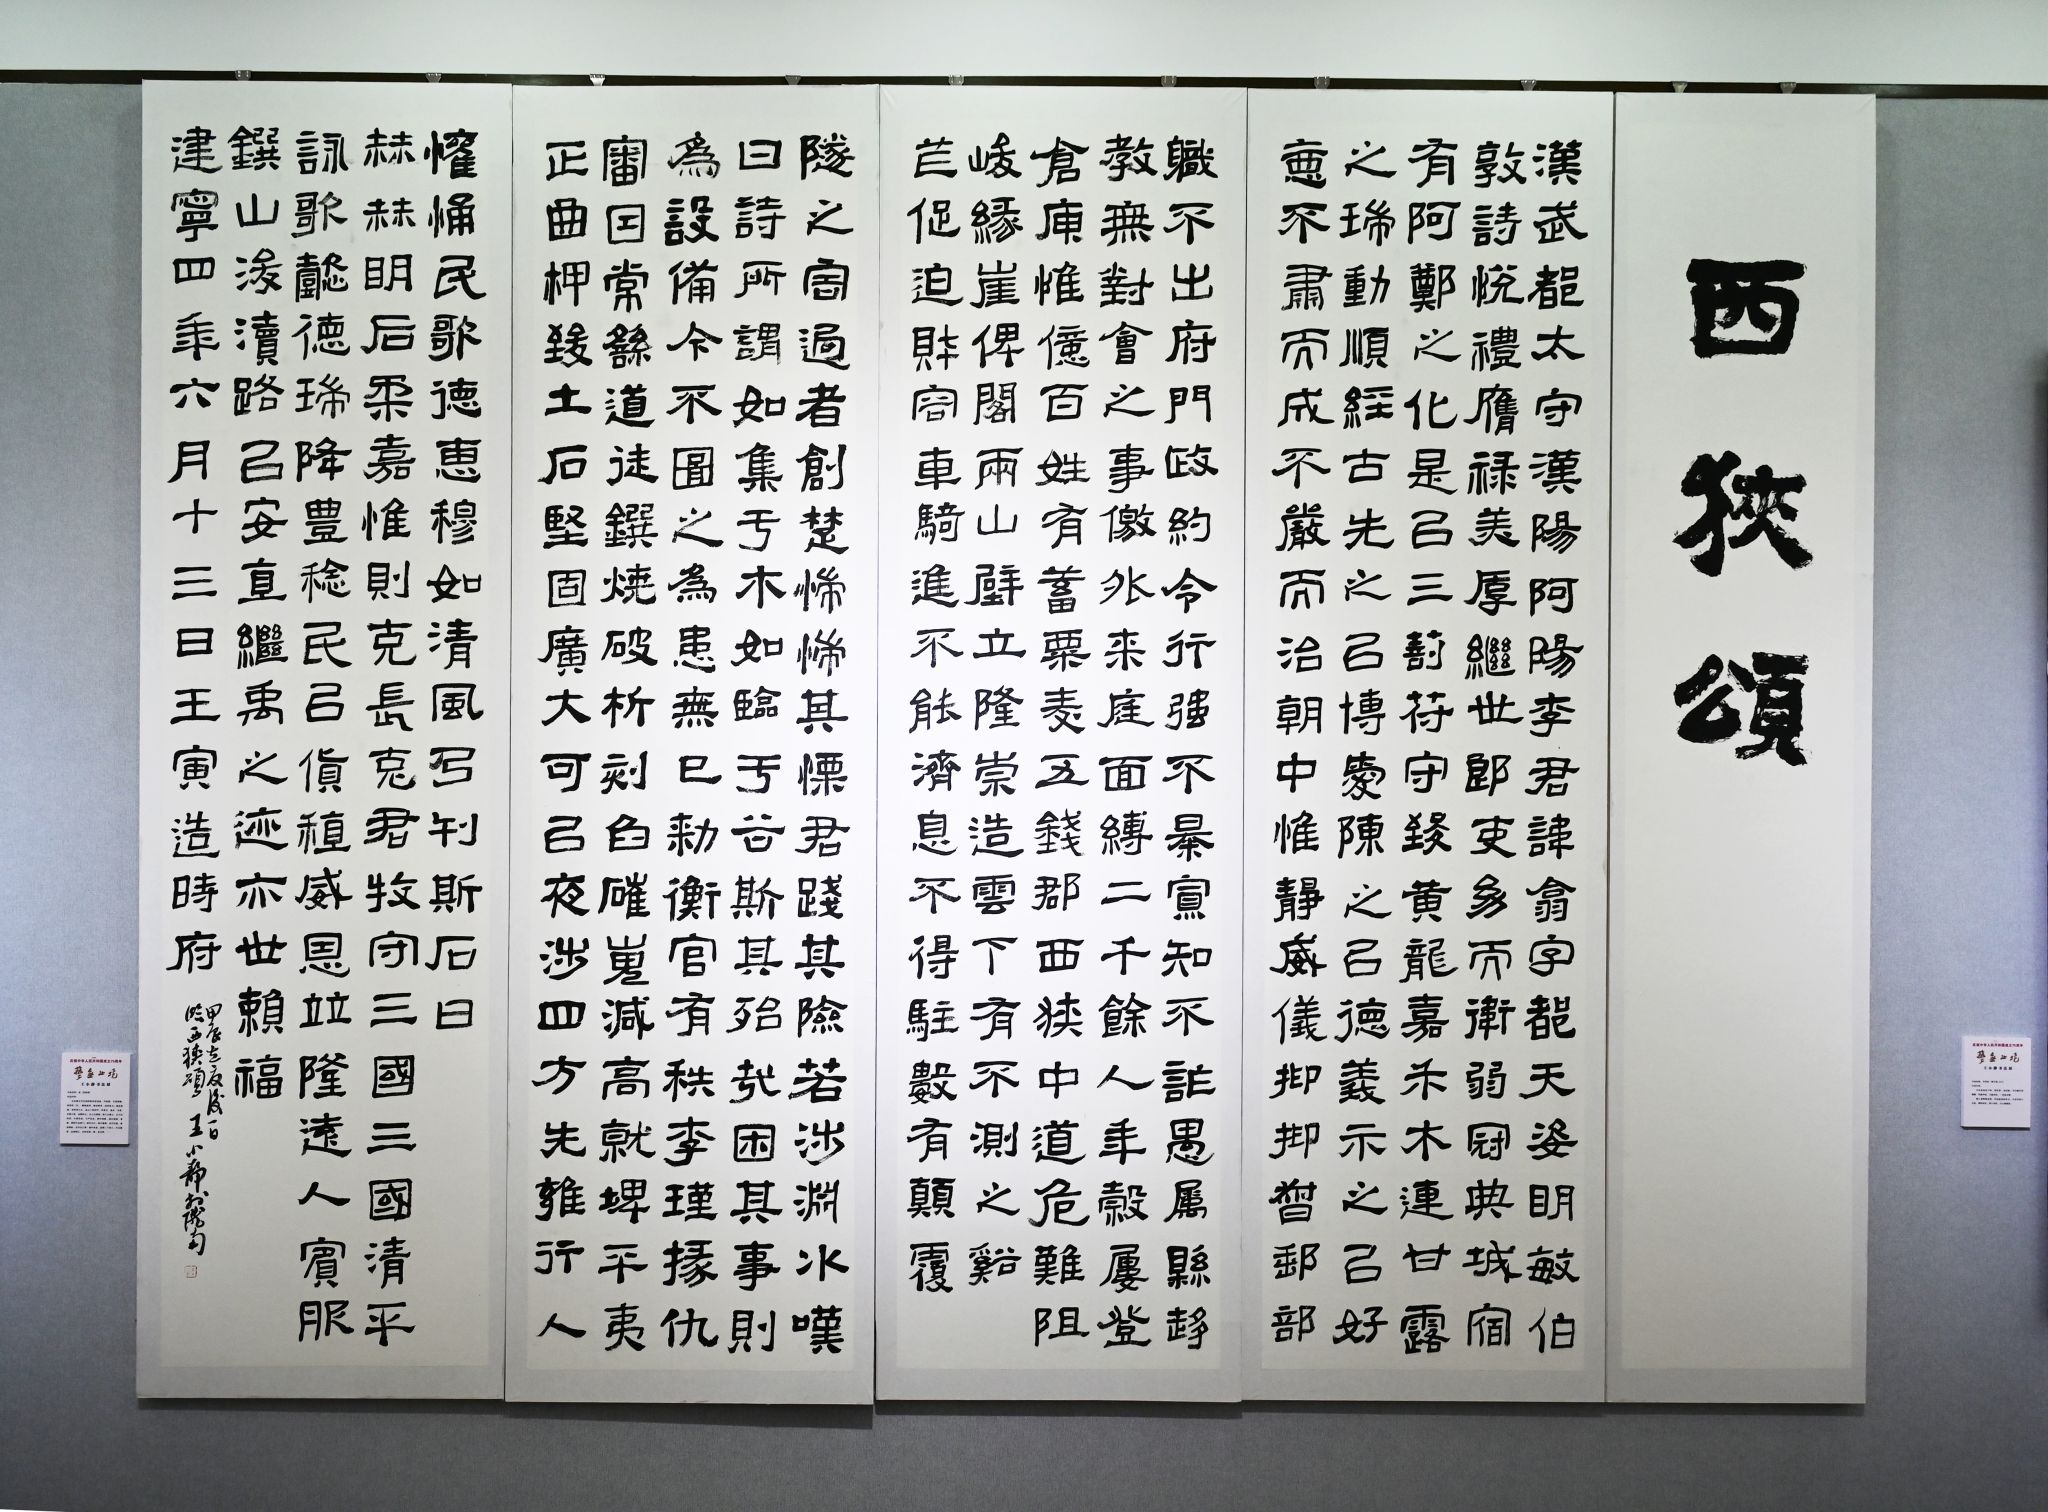 西狹頌
漢武都太守漢陽阿陽李君諱翕字伯都天姿明敏
敦詩悅禮膺祿美厚繼世郎吏幼而宿衛弱冠典城
有阿鄭之化是㠯三剖符守致黃龍嘉禾木連甘露
之瑞動順經古先之㠯博愛陳之㠯德義示之㠯好
惡不肅而成不嚴而治朝中惟靜威儀抑抑督郵部
職不出府門政約令行强不暴寡知不詐愚屬縣趍
教無對會之事儌外来庭面縛二千餘人年穀屢登
倉庾惟億百姓有蓄粟麦五錢郡西狹中道危難阻
峻緣崖俾閣兩山壁立隆崇造雲下有不測之谿
芒促迫財容車騎進不能濟息不得駐數有顛覆
隧之害過者創楚惴惴其慄君踐其險若涉淵氷嘆
曰詩所謂如集于木如臨于谷斯其殆哉困其事則
為設備今不圖之為患無已勑衡官有秩李瑾掾仇
審因常繇道徒鐉燒破析刻臽磪嵬減高就埤平夷
正曲柙致土石堅固廣大可㠯夜涉四方先雍行人
懽悀民歌德惠穆如清風乃刊斯石曰
赫赫明后柔嘉惟則克長克君牧守三國三國清平
詠歌懿德瑞降豊稔民㠯貨稙威恩竝隆遠人賓服
鐉山浚瀆路㠯安直繼禹之迹亦世賴福
建寧四年六月十三日壬寅造時府
甲辰立夏後一日
臨西狹頌
王小靜